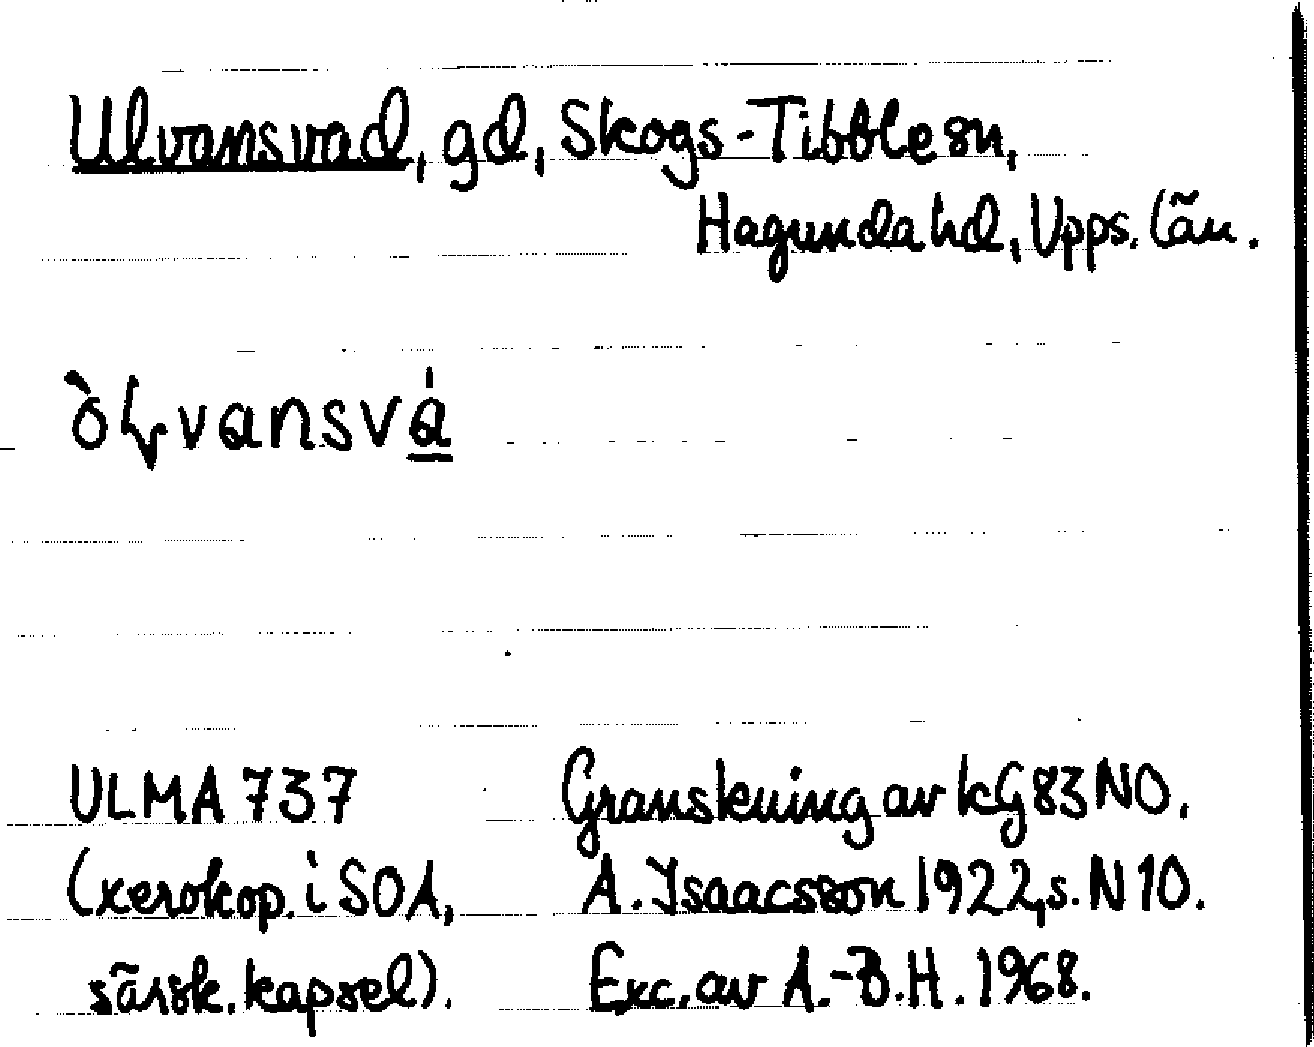 Ulvansvad, gd, Skogs-Tibble sn,
Hagunda hd, Upps. län.
òɽvansvá̲
ULMA 737 Granskning av kG 83 NO.
(xerokop. i SOA, A. Isaacsson 1922, s. N 10.
särsk. kapsel). Exc. av A.-B.H. 1968.